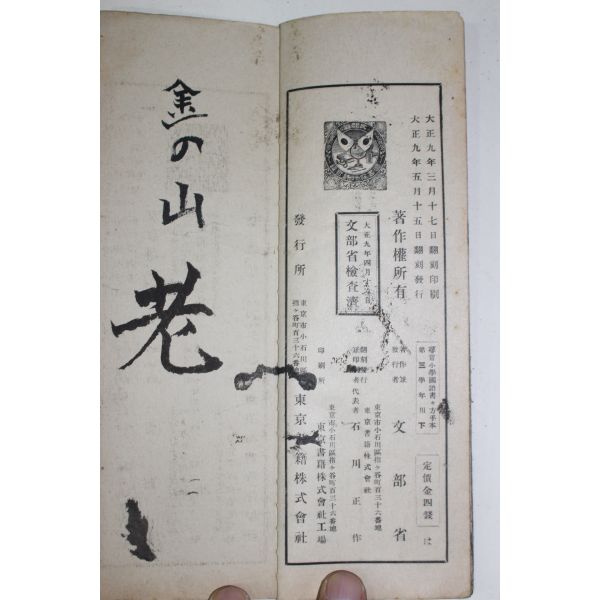 大正九年三月十七日翻刻印刷
大正九年五月十五日翻刻發行
著作權所有
尋常小學國語書キ方手本
第三學年用下
定價金四錢
著作兼
發行者
文部省
大正九年四月
文部省檢査濟
翻刻發行
兼印刷者
東京書籍株式會社
代表者
石川正作
東京市小石川區指ヶ谷町百三十六番地
印刷所
東京書籍株式會社工場
東京市小石川區指ヶ谷町百三十六番地
發行所
東京書籍株式會社
東京市小石川區
指ヶ谷町百三十六番地
金の山
老
一一